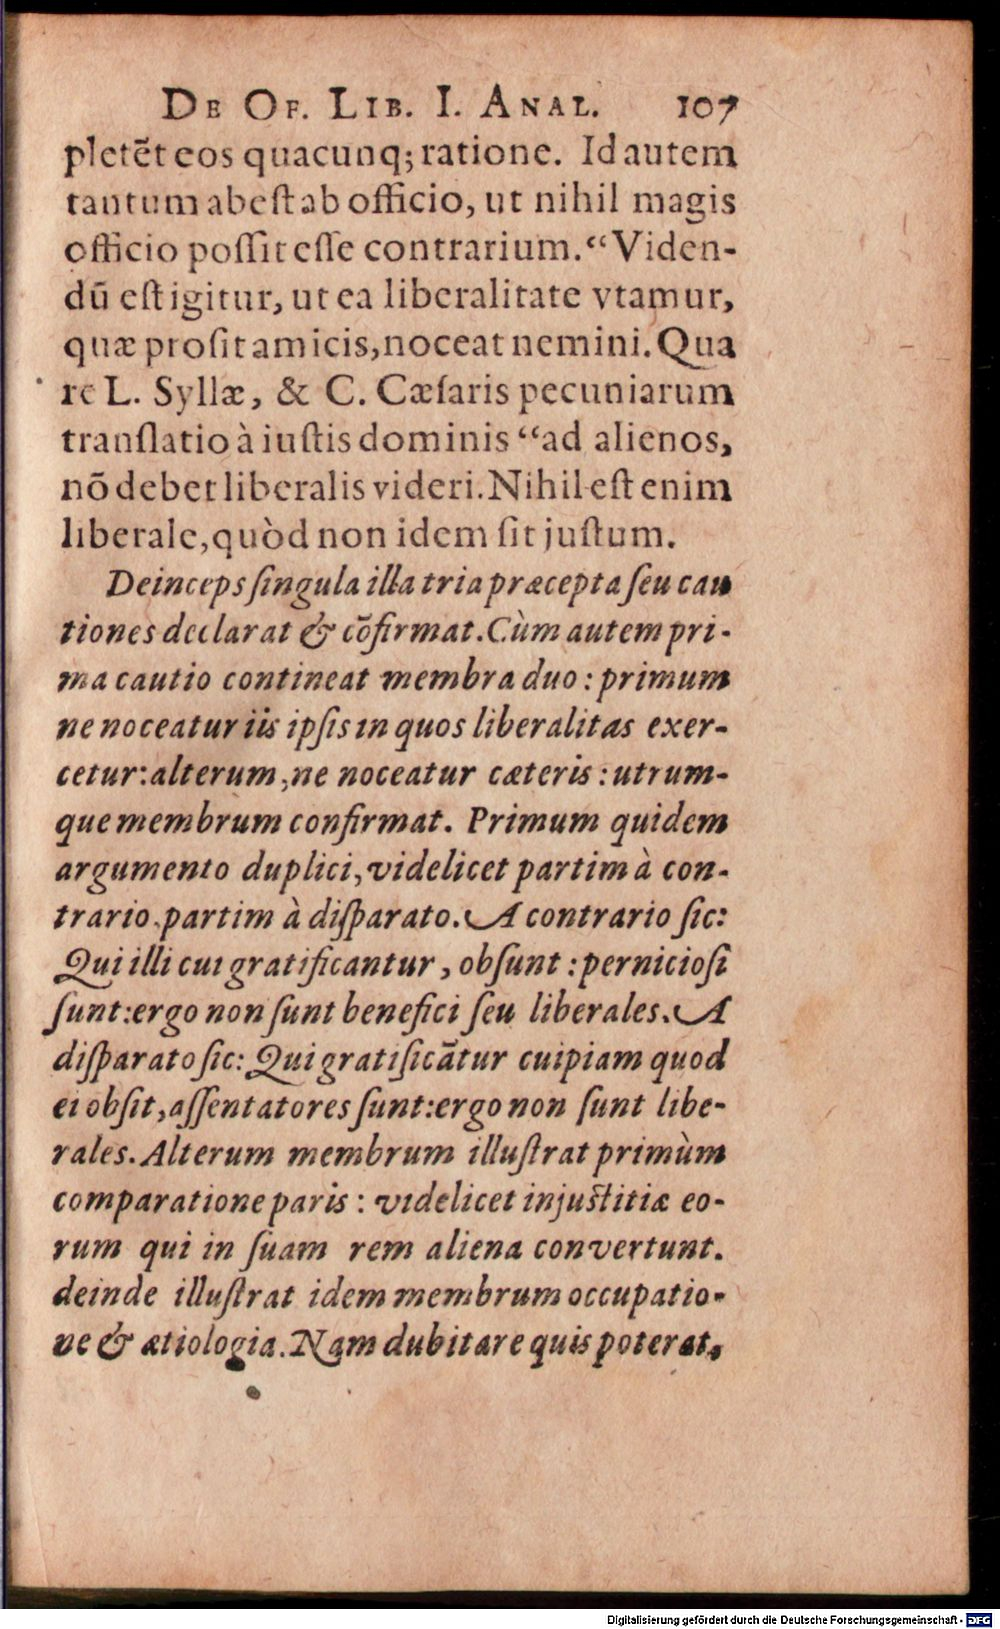 De Of. Lib. I. Anal. 107
pletẽt eos quacunq; ratione. Id autem
tantum abest ab officio, ut nihil magis
officio possit esse contrarium. “Viden-
dū est igitur, ut ea liberalitate vtamur,
quæ prosit amicis, noceat nemini. Qua
re L. Syllæ, & C. Cæsaris pecuniarum
translatio à iustis dominis “ad alienos,
nō debet liberalis videri. Nihil est enim
liberale, quòd non idem sit justum.
Deinceps singula illa tria præcepta seu cau
tiones declarat & cōfirmat. Cùm autem pri-
ma cautio contineat membra duo: primum
ne noceatur iis ipsis in quos liberalitas exer-
cetur: alterum, ne noceatur cæteris: utrum-
que membrum confirmat. Primum quidem
argumento duplici, videlicet partim à con-
trario, partim à disparato. A contrario sic:
Qui illi cui gratificantur, obsunt: perniciosi
sunt: ergo non sunt benefici seu liberales. A
disparato sic: Qui gratificātur cuipiam quod
ei obsit, assentatores sunt: ergo non sunt libe-
rales. Alterum membrum illustrat primùm
comparatione paris: videlicet injustitiæ eo-
rum qui in suam rem aliena convertunt.
deinde illustrat idem membrum occupatio-
ne & ætiologia. Nam dubitare quis poterat,
Digitalisierung gefördert durch die Deutsche Forschungsgemeinschaft - DFG